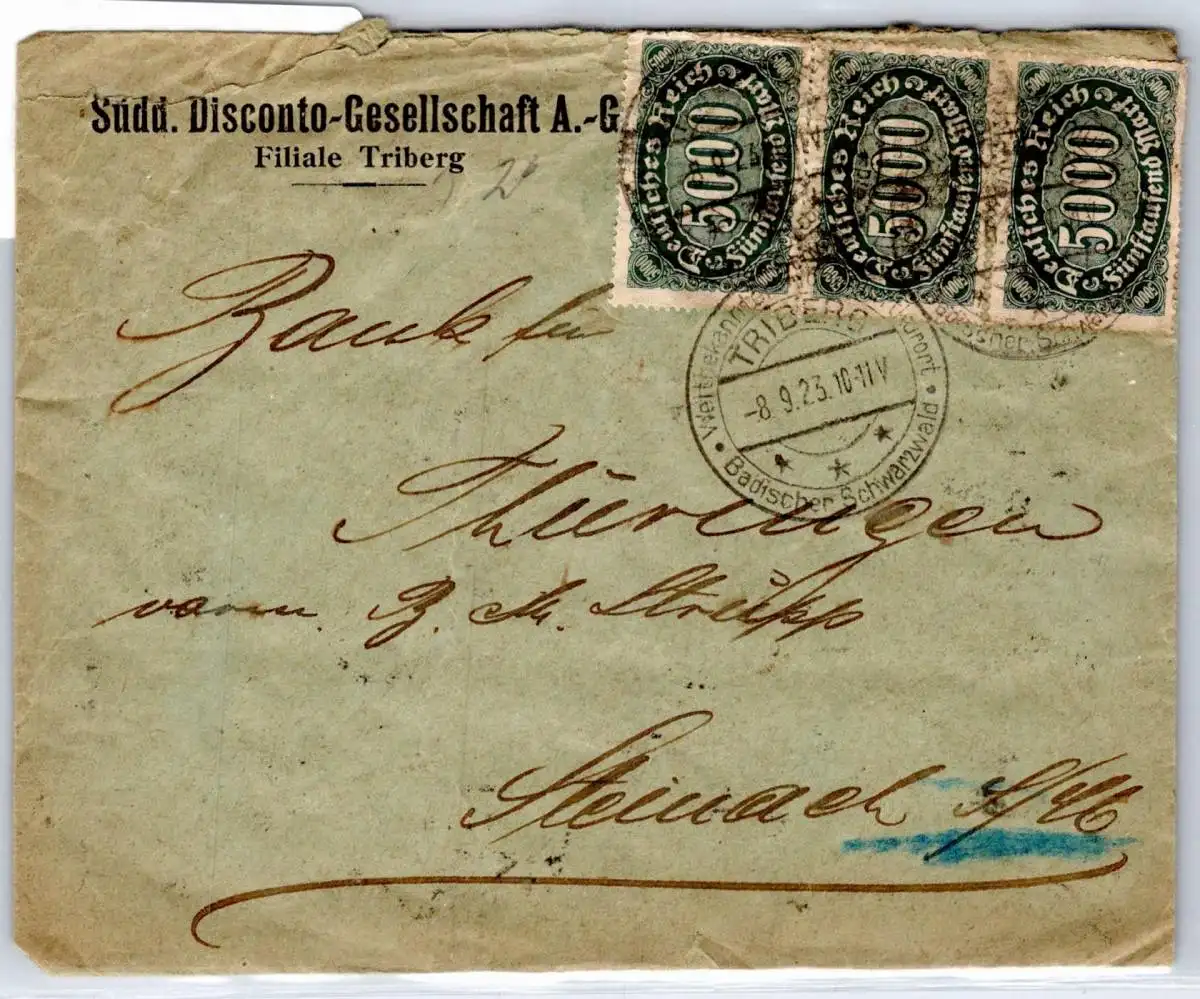 Südd. Disconto-Gesellschaft A.-G
Filiale Triberg
Deutsches Reich
5000
Fünftausend Mark
Deutsches Reich
5000
Fünftausend Mark
Deutsches Reich
5000
Fünftausend Mark
TRIBERG
-8.9.23.10-11V
Badischer Schwarzwald
Bank für
Thüringen
vorm. B. M. Strupp
Steinach S/M